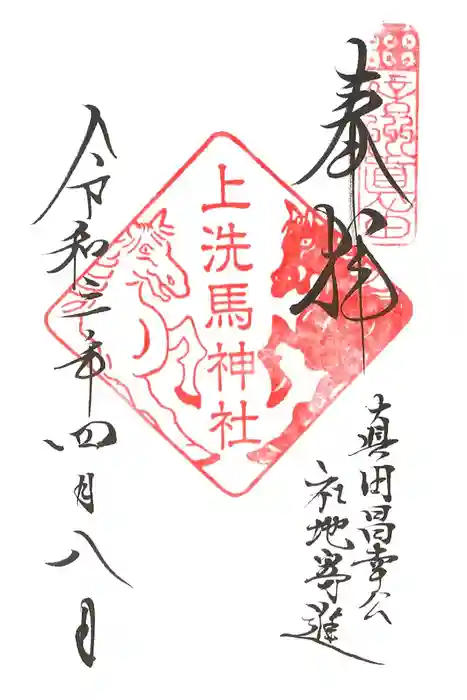 奉拝
眞田昌幸公
社地寄進
上洗馬神社
令和三年四月八日